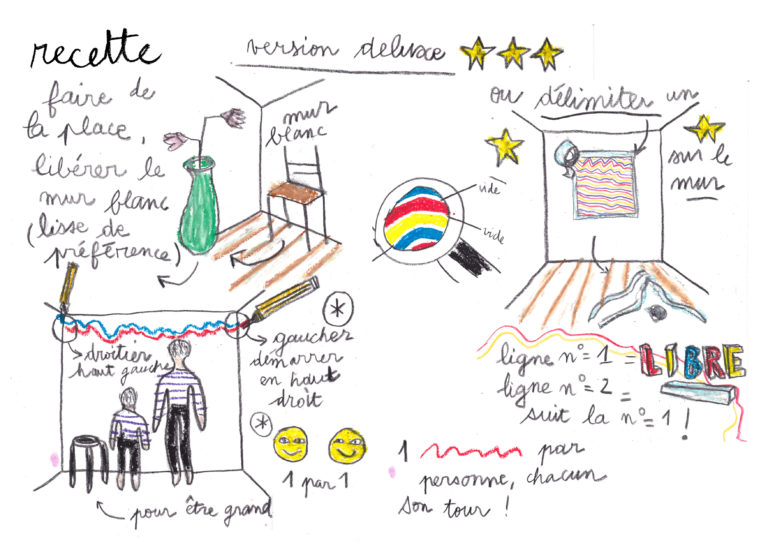 recette
version deluxe
faire de
la place,
libérer le
mur blanc
(lisse de
préférence)
mur
blanc
vide
vide
ou délimiter un
sur le
mur
droitier
haut gauche
gaucher
démarrer
en haut
droit
1 par 1
pour être grand
ligne n° = 1 = LIBRE
ligne n° = 2 =
suit la n° = 1 !
1 par
personne, chacun
son tour !